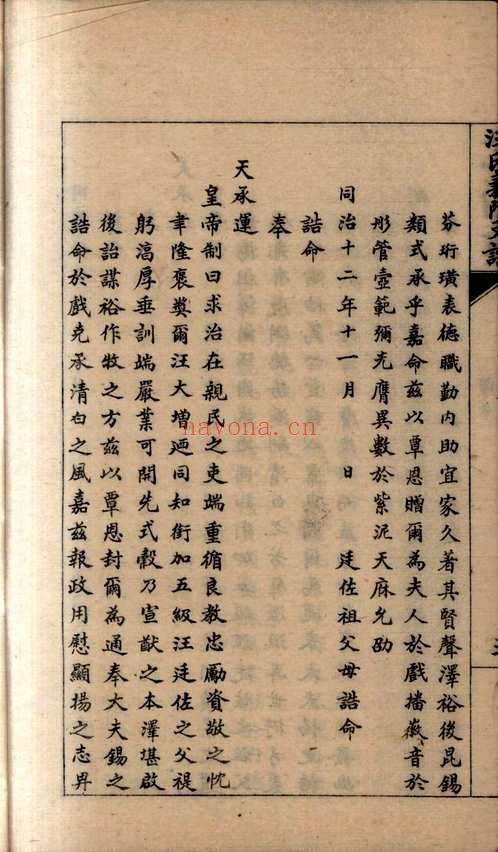 芬珩璜表德職勤內助宜家久著其賢聲澤裕後昆錫
類式承乎嘉命茲以覃恩贈爾為夫人於戲播徽音於
彤管壼範彌光膺異數於紫泥天庥允劭
同治十二年十一月 日 廷佐祖父母誥命
誥命
奉
天承運
皇帝制曰求治在親民之吏端重循良教忠勵資敬之忱
聿隆褒奬爾汪大增迺同知銜加五級汪廷佐之父禔
躬淳厚垂訓端嚴業可開先式穀乃宣猷之本澤堪啟
後詒謀裕作牧之方茲以覃恩封爾為通奉大夫錫之
誥命於戲克承清白之風嘉茲報政用慰顯揚之志畀
nayona.cn